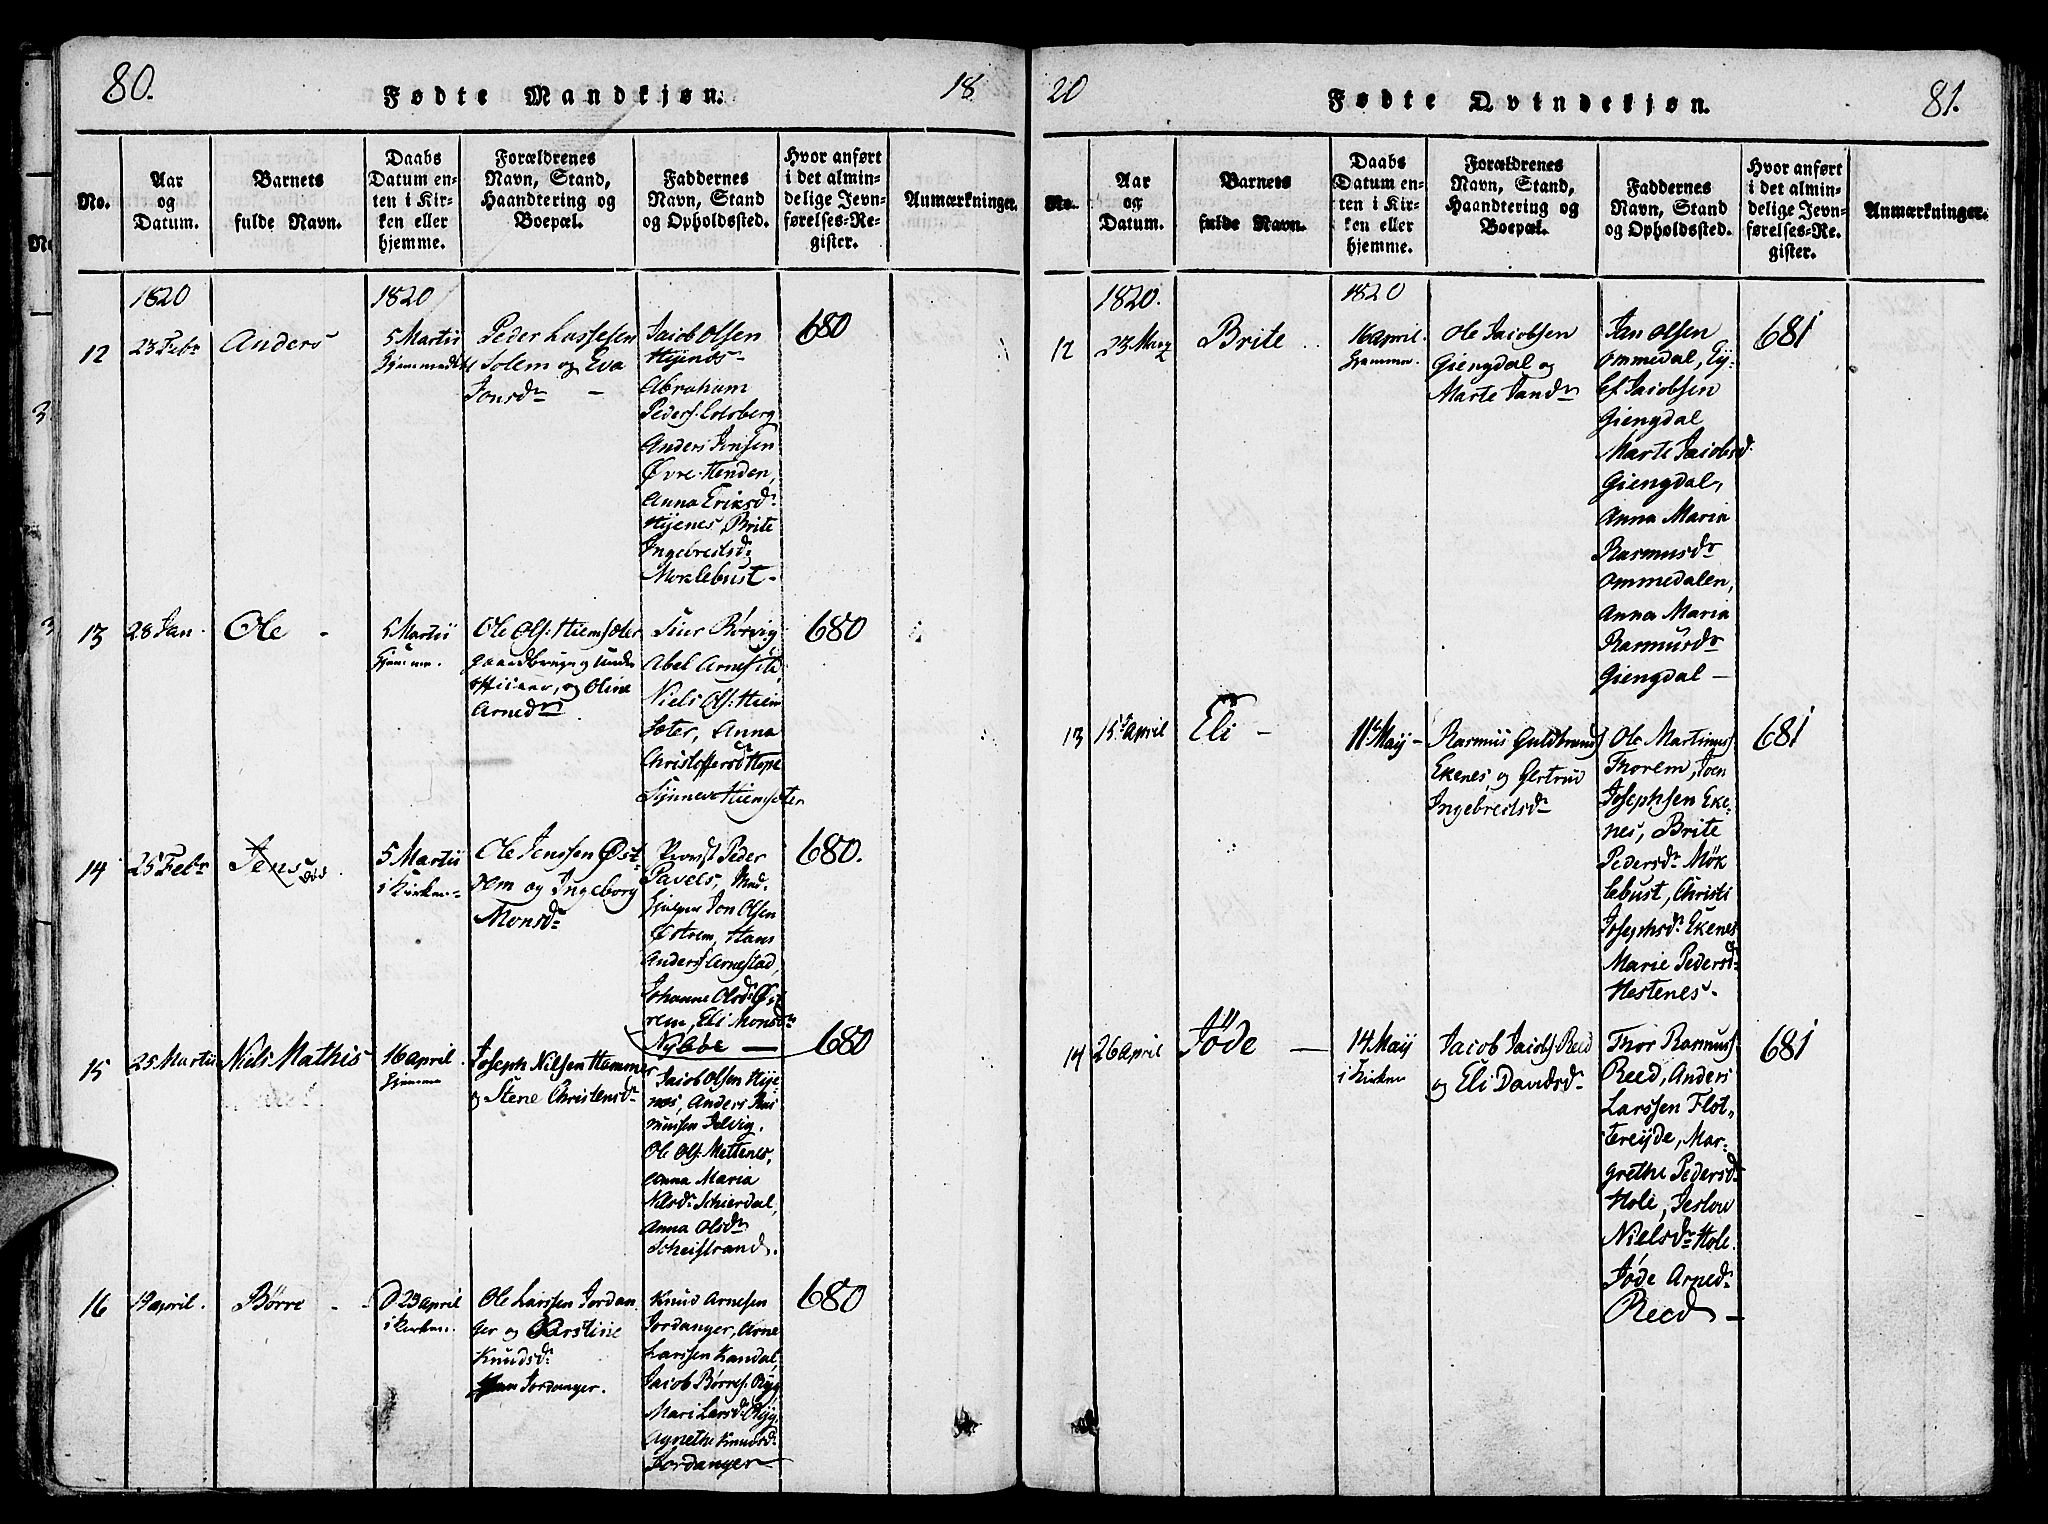 80.
Fødte Mandkjøn.
18
No.
Aar
og
Datum.
Barnets
fulde Navn.
Daabs
Datum en-
ten i Kir-
ken eller
hjemme.
Forældrenes
Navn, Stand,
Haandtering og
Boepæl.
Faddernes
Navn, Stand
og Opholdssted.
Hvor anført
i det almin-
delige Jevn-
førelses-Re-
gister.
Anmærkninger.
1820
1820
12
23 Febr
Anders
5 Martii
Hjemmedøbt
Peder Lassesen
Solem og Eva
Jonsdr
Jacob Olsen
Hyenes
Abraham
Peders. Eidsberg
Anders Jensen
Øvre Henden,
Anna Eriksdr
Hyenes, Brite
Ingebretsdr
Møklebust
680
13
28 Jan.
Ole
5 Martii
hjemme.
Ole Ols: Hiemsæter
gaardbruger og under
officeer, og Oline
Arnedr
Siur Børvig
Abel Arnes
Niels Ols: Hiem
sæter, Anna
Christoffersd Hope
Synneve Hiemsæter
680
14
25 Febr
Jens
død
5 Martii
i Kirken
Ole Jenssen Øst-
rem og Ingeborg
Monsdr
Provst Peder
Pavels, Med-
hjelper Jon Olsen
Østrem, Hans
Anders Arnestad,
Johanne Olsdr Øst
rem, Eli Monsdr
Nybøe
680.
15
25 Martii
Niels Mathis
16 april
hjemme
Joseph Nilsen Hammer
og Stene Christensdr
Jacob Olsen Hye-
nes, Anders Ras
mussen Selvig.
Ole Ols: Mettenes,
Anna Maria
Nilsdr Schierdal,
Anna Olsdr
Scheistrand.
680
16
19 april.
Børre
D 23 april
i kirken.
Ole Larssen Jordan
ger og Kirstine
Knudsdr
Jordanger.
Knud Arnesen
Jordanger, Arne
Larssen Kandal,
Jacob Børres. Ryg
Mari Larsdr Ryg
Agnethe Knudsdr
Jordanger
680
20
Fødte Qvindekjøn.
81.
No.
Aar
og
Datum.
Barnets
fulde Navn.
Daabs
Datum en-
ten i Kir-
ken eller
hjemme.
Forældrenes
Navn, Stand,
Haandtering og
Boepæl.
Faddernes
Navn, Stand
og Opholdssted.
Hvor anført
i det almin-
delige Jevn-
førelses-Re-
gister.
Anmærkninger.
1820.
1820
12
23 Martz
Brite
16 april.
hjemme.
Ole Jacobsen
Giengdal og
Marte Jansdr
Jan Olsen
Ommedal, Ey-
lef Jacobsen
Giengdal
Marte Jacobsd.
Giengdal,
Anna Maria
Rasmusdr
Ommedalen,
Anna Maria
Rasmusdr
Giengdal
681
13
15 april
Eli
11 May
Rasmus Guldbrands
Ekenes, og Gertrud
Ingebretsdr
Ole Martinus
Thorem, Joen
Josephsen Eke-
nes, Brite
Pedersdr Møk
lebust, Christi
Josephsdr Ekenes
Marie Pedersdr
Hestenes.
681
14
26 april
Jøde
14 May
i kirken
Jacob Jacobs. Reed
og Eli Davidsdr
Thor Rasmus
Reed, Anders
Larssen Flot,,
tereyde, Mar-
grethe Pedersdr
Hole,
Nielsdr Hole.
Jøde Arnedr
Reed
681